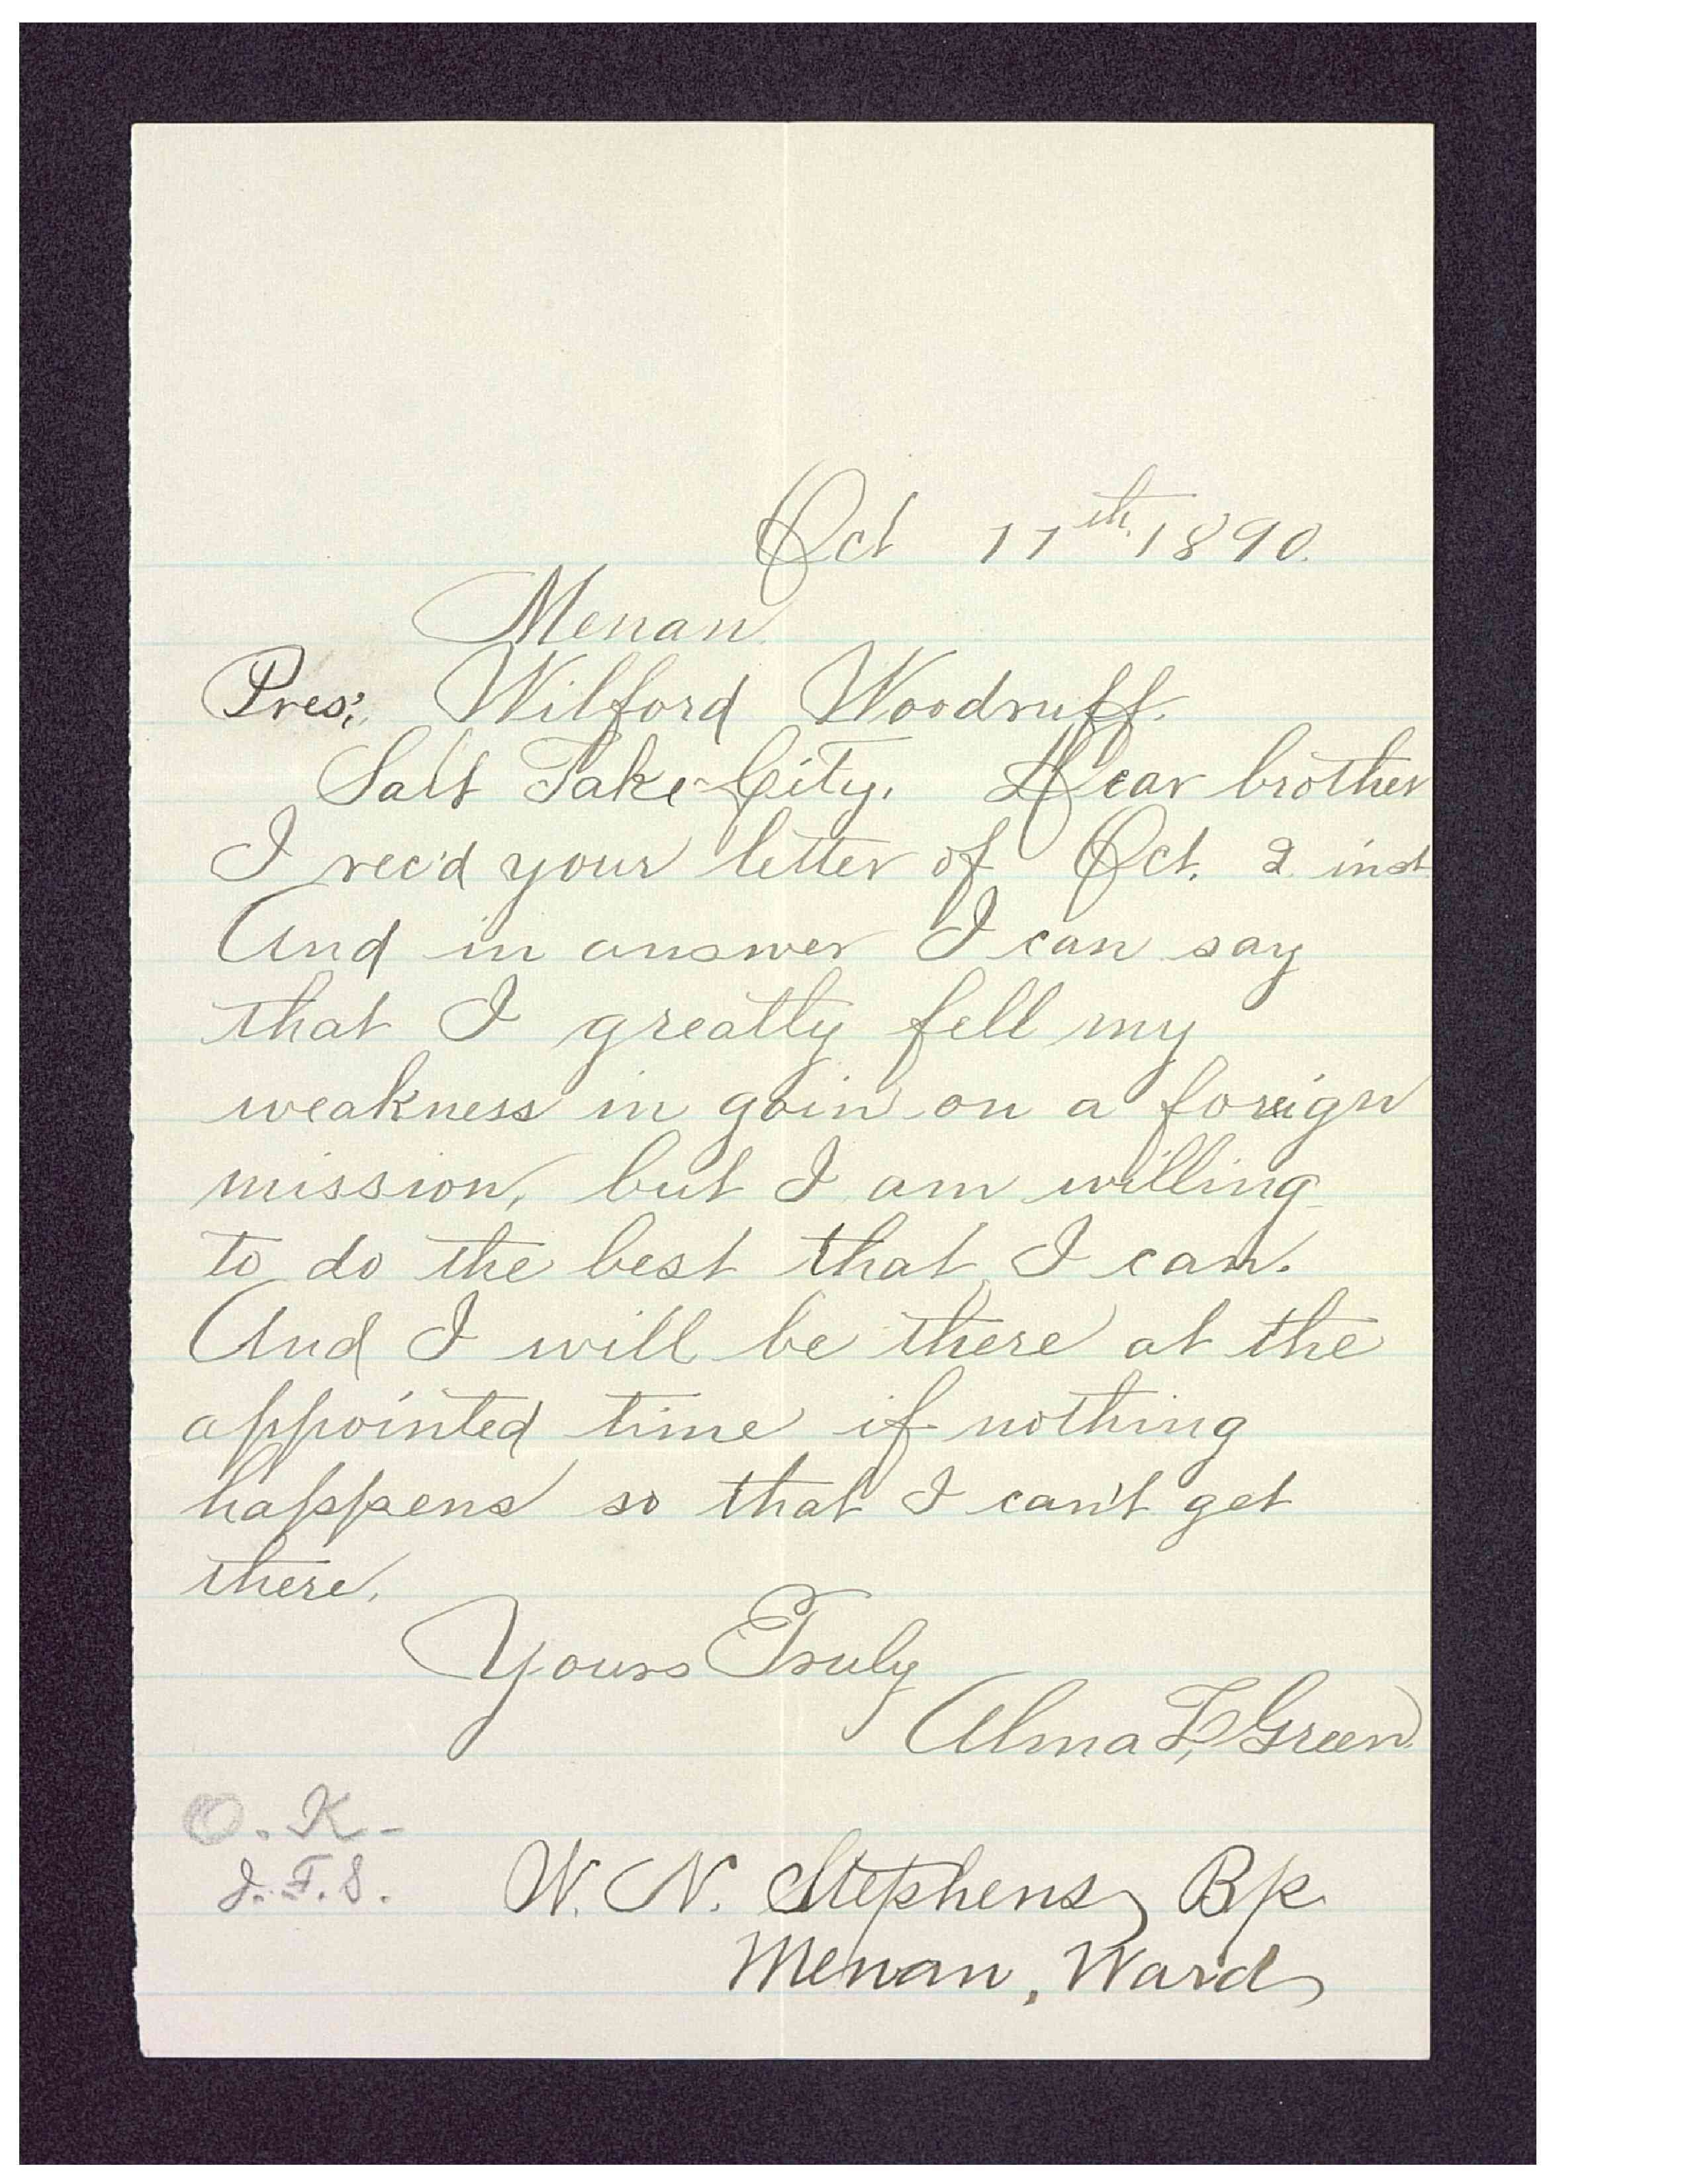 Oct 11th 1890.
Menan
Pres; Wilford Woodruff.
Salt Lake City. Dear brother
I rec'd your letter of Oct. 2 inst
And in answer I can say
that I greatly fell my
weakness in goin on a foreign
mission, but I am willing
to do the best that I can.
And I will be there at the
appointed time if nothing
happens so that I can't get
there.
Yours Truly
Alma L, Green
O. K -
J. F. S.
W. N. Stephens Bp
Menan, Ward